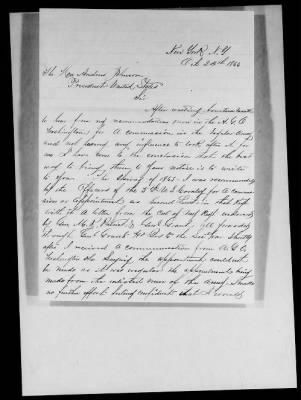 New York N.Y.
Oct 20th 1866
The Hon Andrew Johnson
President United States
Sir
After waiting
to hear from my recommendations now in the A.G.O.
Washington for A commission in the Regular Army
and not having any influence to look after it for
me I have come to the conclusion that the best
way to bring them to your notice is to write
to you. The Spring of 1865 I was recommended
by the Officers of the 5th U.S. Cavalry for A commis
sion or appointment as Second Lieut in that Regt
with it A letter from the Col of my Regt endorsed
by Gen M.R. Patrick & Genl Grant, all forwarded
through Genl Grants Hd Qrs to the Sec of War Shortly
after I received A communication from A.G.O.
Washington saying the appointment could not
be made as it was vacation the appointments being
made from the enlisted men of the Army. I made
no further effort feeling confident that I would